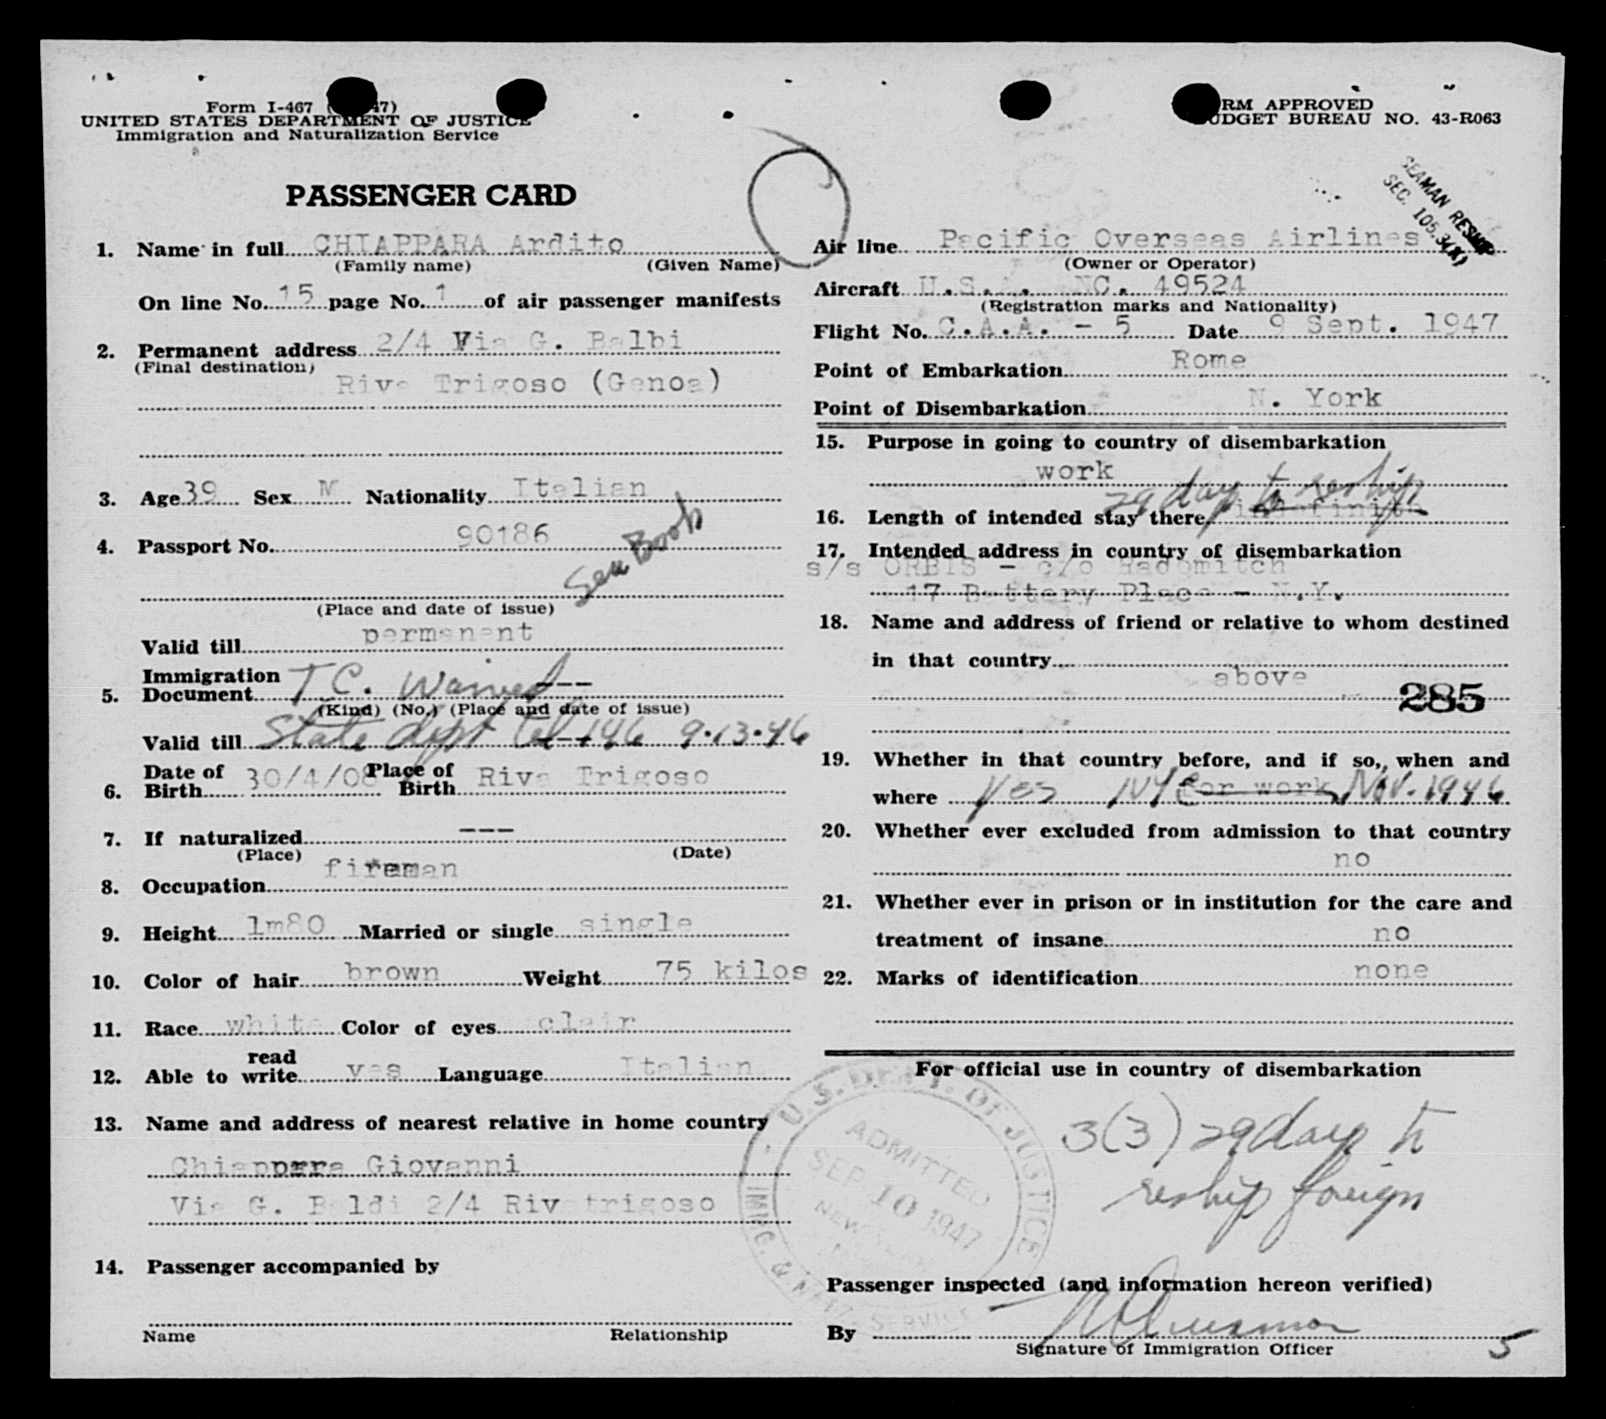 Form I-467 ( 47)
UNITED STATES DEPARTMENT OF JUSTICE
Immigration and Naturalization Service
RM APPROVED
UDGET BUREAU NO. 43-R063
SEAMAN RESHIP
SEC. 105.3(A)
PASSENGER CARD
1. Name in full CHIAPPARA Ardito
(Family name) (Given Name)
On line No. 15 page No. 1 of air passenger manifests
2. Permanent address 2/4 Via G. Balbi
(Final destination)
Riva Trigoso (Genoa)
3. Age 39 Sex M Nationality Italian
4. Passport No. 90186
Sea Book
(Place and date of issue)
Valid till permanent
5. Immigration Document T.C. Waived ---
(Kind) (No.) (Place and date of issue)
Valid till State dept tel 146 9.13.46
6. Date of Birth 30/4/08 Place of Birth Riva Trigoso
7. If naturalized ---
(Place) (Date)
8. Occupation fireman
9. Height 1m80 Married or single single
10. Color of hair brown Weight 75 kilos
11. Race white Color of eyes clair
12. Able to read write yes Language Italian
13. Name and address of nearest relative in home country
Chiappara Giovanni
Via G. Baldi 2/4 Rivatrigoso
14. Passenger accompanied by
Name Relationship
Air line Pacific Overseas Airlines
(Owner or Operator)
Aircraft U.S.A. NC. 49524
(Registration marks and Nationality)
Flight No. C.A.A. - 5 Date 9 Sept. 1947
Point of Embarkation Rome
Point of Disembarkation N. York
15. Purpose in going to country of disembarkation
work
29 days to reship
16. Length of intended stay there indefinite
17. Intended address in country of disembarkation
s/s ORBIS - c/o Radomitch
17 Battery Place - N.Y.
18. Name and address of friend or relative to whom destined
in that country
above
285
19. Whether in that country before, and if so, when and
where yes NY for work Nov. 1946
20. Whether ever excluded from admission to that country
no
21. Whether ever in prison or in institution for the care and
treatment of insane no
22. Marks of identification none
For official use in country of disembarkation
3(3) 29 days to
reship foreign
U.S. DEPT. OF JUSTICE
ADMITTED
SEP 10 1947
NEW YORK
IMMG. & NATZ. SERVICE
Passenger inspected (and information hereon verified)
By
Signature of Immigration Officer
5